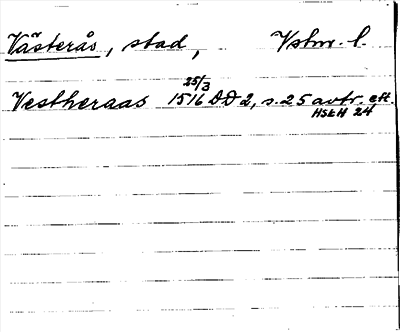 Västerås, stad, Vstm. l.
25/3
Vestheraas 1516 DD 2, s. 25 avtr. eft.
HSEH 24